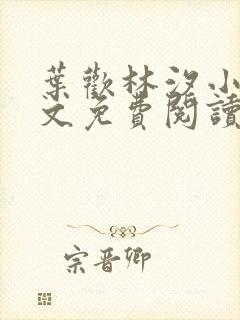 葉歡林汐小
文免費閱讀
宗晉卿